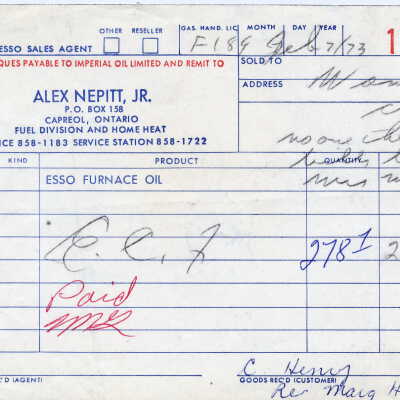 OTHER RESELLER GAS. HAND. LIC MONTH DAY YEAR
ESSO SALES AGENT F189 Feb 7/73 1
QUES PAYABLE TO IMPERIAL OIL LIMITED AND REMIT TO SOLD TO
ADDRESS
ALEX NEPITT, JR.
P.O. BOX 158
CAPREOL, ONTARIO
FUEL DIVISION AND HOME HEAT
ICE 858-1183 SERVICE STATION 858-1722
KIND PRODUCT QUANTITY
ESSO FURNACE OIL
278 1 2
Paid
C Henry
C'D (AGENT) GOODS REC'D (CUSTOMER)
Per Marg H